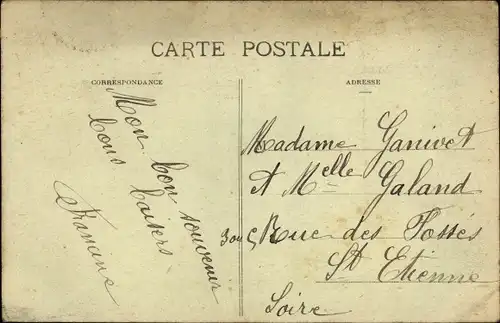 CARTE POSTALE
CORRESPONDANCE
Mon bon souvenir
bons baisers
ADRESSE
Madame Ganivet
et Melle Galand
Rue des Fossés
St Etienne
Loire